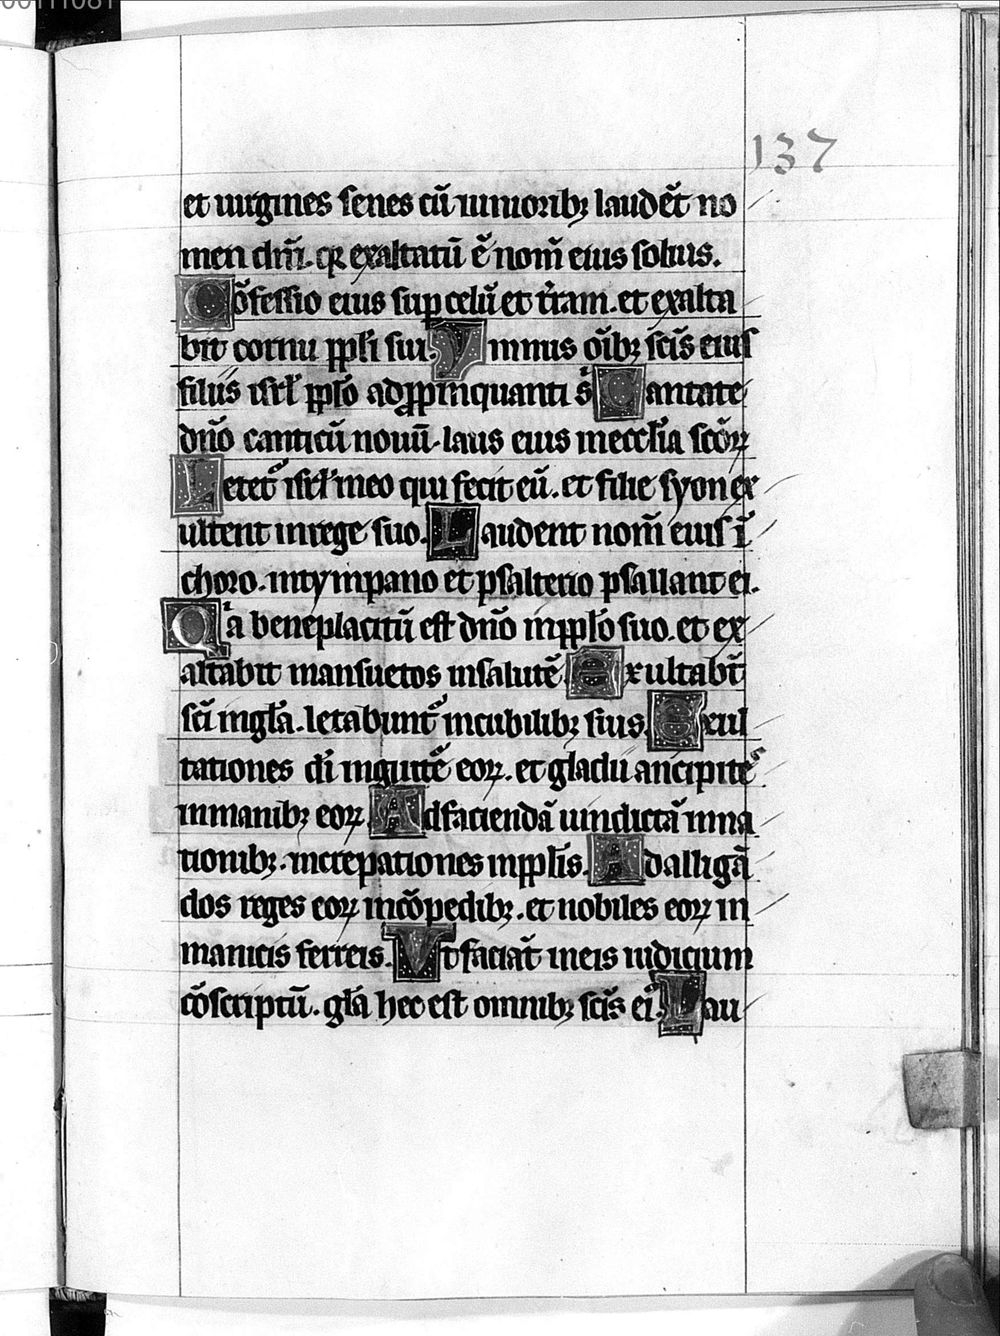 00111081
137
et uirgines senes cū iunioribꝫ laudēt no
men dn̄i. qꝛ exaltatū ē nom̄ eius solius.
Cōfessio eius sup celū et t̄ram. et exalta
bit cornu ppl̄i sui. Ymnus oībꝫ scīs eius
filiis isrl̄ ppl̄o adpropinquanti s̄ Cantate
dn̄o canticū nouū. laus eius in eccl̄ia scōꝝ
Letet᷑ isrl̄ in eo qui fecit eū. et filie syon ex
ultent in rege suo. Laudent nom̄ eius ī
choro. in tympano et psalterio psallant ei.
Qͥa beneplacitū est dn̄o in ppl̄o suo. et ex
altabit mansuetos in salutē Exultabt̄
scī in gl̄a. letabunt᷑ in cubilibꝫ suis. Exul
tationes dī in gutt̄e eoꝝ. et gladii ancipites
in manibꝫ eoꝝ Ad faciendā uindictā in na
tionibꝫ. increpationes in ppl̄is. Ad alligā
dos reges eoꝝ in cōpedibꝫ. et nobiles eoꝝ in
manicis ferreis. Vt faciāt in eis iudicium
cōscriptū. gl̄a hec est omnibꝫ scīs ei᷒ Lau